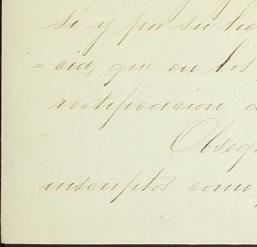 sí y por su he
= cia, que en los
rectificacion d
Obseq
inscriptos como